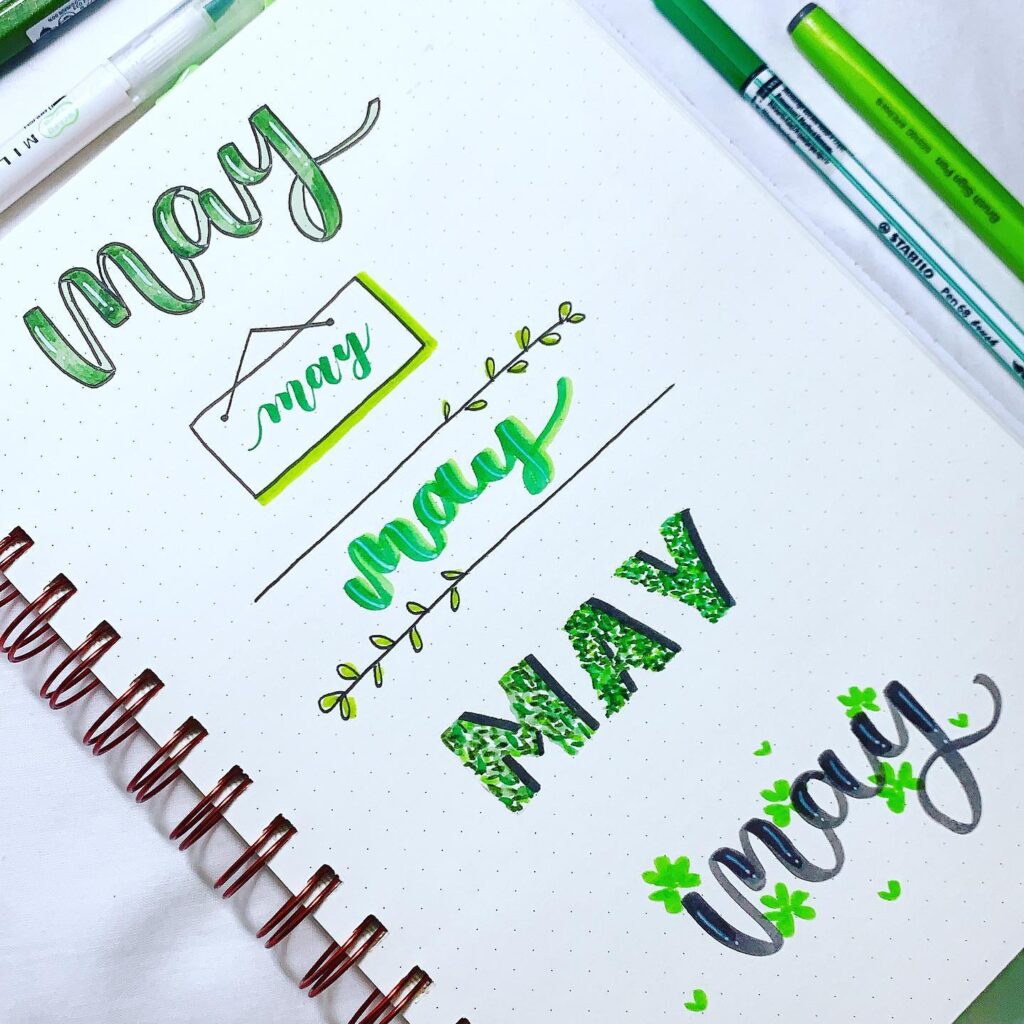 may
may
may
MAY
may
MIL
STABILO Pen 68 brush
Brush Sign Pen